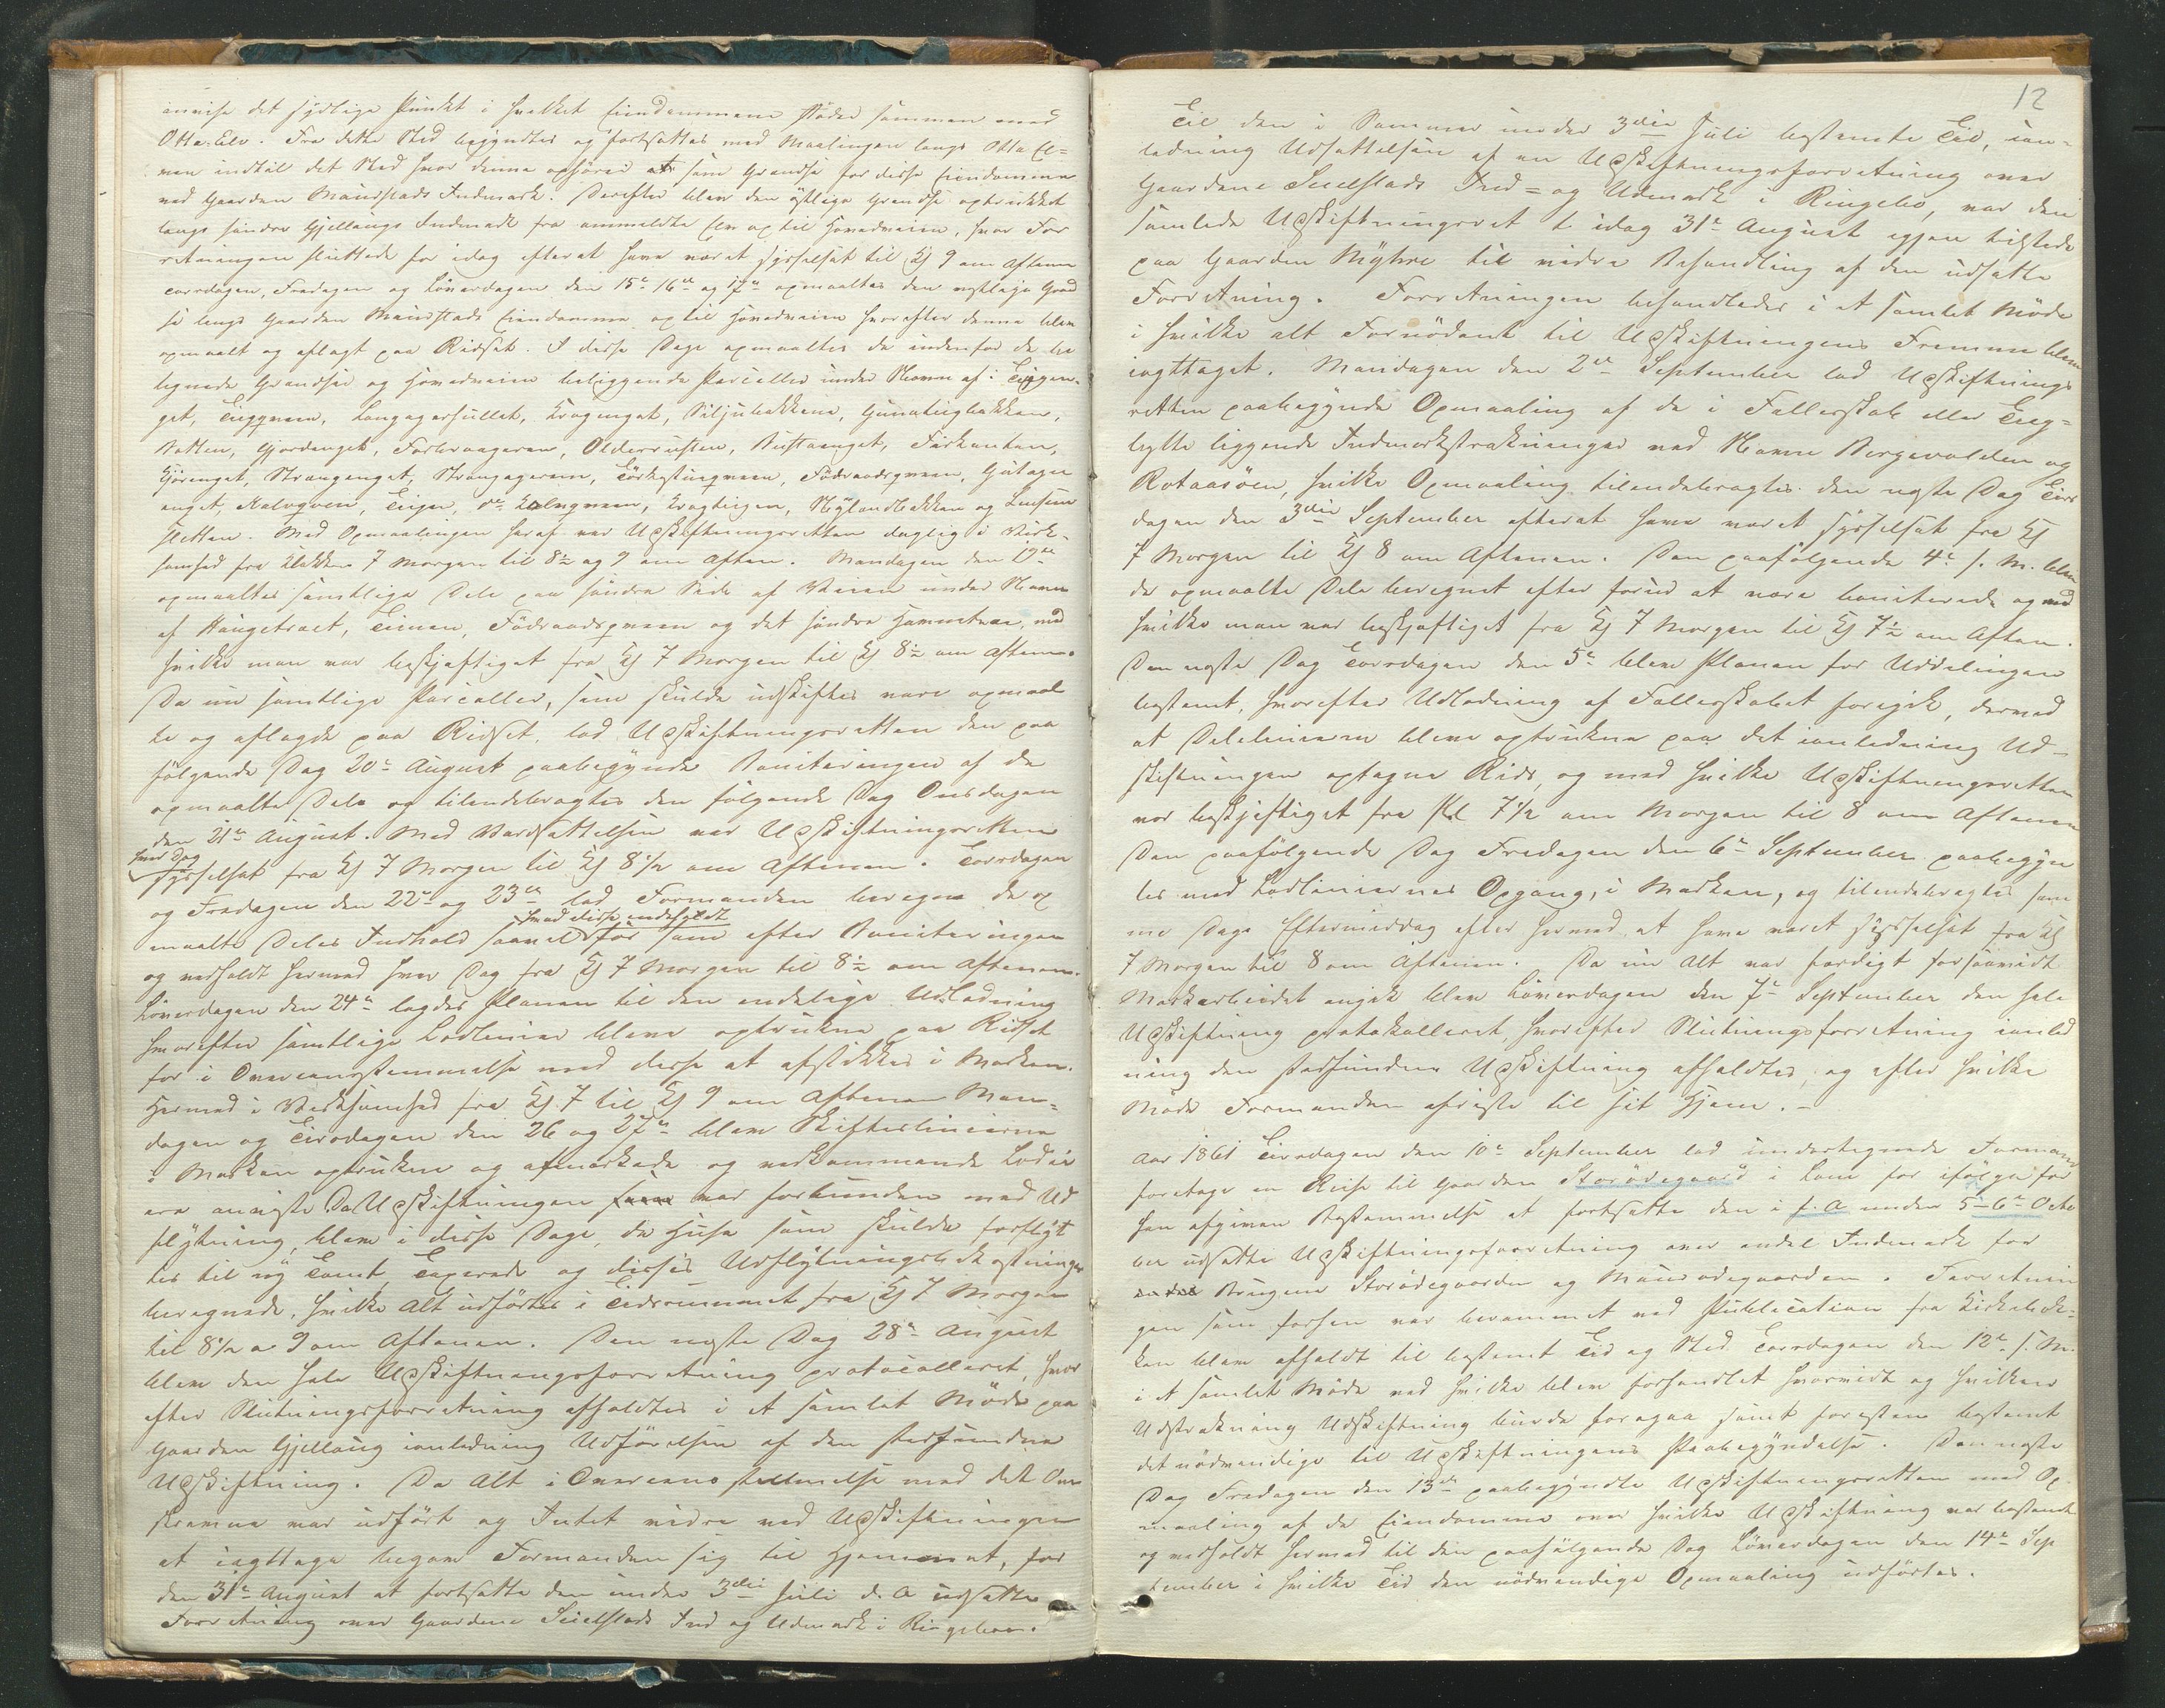 anvise det sydlige Punkt i hvilket Eiendommene støder sammen med
Otta-Elv. Fra dette Sted begyndtes og fortsattes med Maalingen langs Otta El=
ven indtil det Sted hvor denne ophører at som Grændse for disse Eiendomme
ved Gaarden Maurstads Indmark. Derefter blev den østlige Grændse optrukket
langs søndre Gjellaugs Indmark fra anmeldte Elv op til Hovedveien, hvor For
retningen sluttede for idag efterat have været sysselsat til Kl 9 om Aftenen
Torsdagen, Fredagen og Løverdagen den 15de 16de og 17de opmaaltes den vestlige Grænd
se langs Gaarden Maurstads Eiendomme op til Hovedveien hvorefter denne blev
opmaalt og aflagt paa Ridset. I disse Dage opmaaltes de indenfor de be
tegnede Grændser og Hovedveien beliggende Parceller under Navn af:
get, Langagerhullet, Kragenget, Siljubakkene,
Gjordenget, Olderrusten, Firkanten,
Strangenget, Strangagerene, Födraadsqveen,
enget, Kalvqveen, Teigen, do Kalvqveen, Kragteigen, Nylandbakken og
sletten. Med Opmaalingen heraf var Udskiftningsretten daglig i Virk-
somhed fra Klokken 7 Morgen til 8½ og 9 om Aften. Mandagen den 19de
opmaaltes samtlige Dele paa søndre Side af Veien under Navn
af Haugetraet, Födraadsqveen og det søndre med
hvilke man var beskjæftiget fra Kl 7 Morgen til Kl 8½ om Aftenen.
Da nu samtlige Parceller, som skulde udskiftes vare opmaal
te og aflagde paa Ridset, lod Udskiftningsretten den paa
følgende Dag 20de August paabegynde Boniteringen af de
opmaalte Dele og tilendebragtes den følgende Dag Onsdagen
den 21de August. Med Værdsættelsen var Udskiftningsretten
hver Dag
sysselsat fra Kl 7 Morgen til Kl 8 1/2 om Aftenen. Torsdagen
og Fredagen den 22de og 23de lod Formanden beregne de op
hvad disse indeholdt
maalte Deles Indhold saavel før som efter Boniteringen
og vedholdt hermed hver Dag fra Kl 7 Morgen til 8½ om Aftenen.
Løverdagen den 24de lagdes Planen til den endelige Udlodning
hvorefter samtlige Lodlinier bleve optrukne paa Ridset
for i Overeensstemmelse med disse at afstikkes i Marken.
Hermed i Virksomhed fra Kl. 7 til Kl 9 om Aftenen Man-
dagen og Tirsdagen den 26 og 27de blev Skiftelinierne
i Marken optrukne og afmærkede og vedkommende Lodei
ere anviste. Da Udskiftningen var forbunden med Ud
flytning, blev i disse Dage, de Huse som skulde forflyt
tes til ny Tomt, Taxerede og disses Udflytningsbekostninger
beregnede, hvilke Alt udførtes i Tidsrummet fra Kl 7 Morgen
til 8 1/2 a 9 om Aftenen. Den næste Dag 28de August
blev den hele Udskiftningsforretning protocolleret, hvor
efter Slutningsforretning afholdtes i et samlet Møde paa
Gaarden Gjellaug ianledning Udførelsen af den stedfundne
Udskiftning. Da Alt i Overeensstemmelse med det Om
skrevne var udført og Intet videre ved Udskiftningen
at iagttage begav Formanden sig til Hjemmet, for
den 31te August at fortsætte den under 3die Juli d. A udsatte
Forretning over Gaardene Suelstads Ind og Udmark i Ringeboe.
12
Til den i Sommer under 3die Juli bestemte Tid, ian-
ledning Udsættelsen af en Udskiftningsforretning over
Gaardene Suelstads Ind= og Udmark i Ringebo, var den
samlede Udskiftningsret t idag 31te August igjen tilstede
paa Gaarden Myhre til videre Behandling af den udsatte
Forretning. Forretningen behandledes i et samlet Møde
i hvilke alt Fornødent til Udskiftningens Fremme blev
iagttaget. Mandagen den 2den September lod Udskiftnings
retten paabegynde Opmaaling af de i Fællesskab eller Teig=
bytte liggende Indmarkstrækninger ved Navn Bergevolden og
Rotaasöen, hvilke Opmaaling tilendebragtes den næste Dag Tirs
dagen den 3die September efterat have været sysselsat fra Kl
7 Morgen til Kl 8 om Aftenen. Den paafølgende 4de s. M. blev
de opmaalte Dele beregnet efter forud at være boniterede og med
hvilke man var beskjæftiget fra Kl 7 Morgen til Kl 7½ om Aften.
Den næste Dag Torsdagen den 5te blev Planen for Uddelingen
bestemt, hvorefter Udlodning af Fællesskabet foregik, dermed
at Delelinierne bleve optrukne paa det ianledning Ud-
skiftningen optagne Rids, og med hvilke Udskiftningsretten
var beskjæftiget fra Kl 7 1/2 om Morgen til 8 om Aftenen
Den paafølgende Dag Fredagen den 6te September paabegyn
tes med Lodliniernes Opgang, i Marken, og tilendebragtes sam
me Dags Eftermiddag efter hermed at have været sysselsat fra Kl
7 Morgen til 8 om Aftenen. Da nu Alt var færdigt forsaavidt
Markarbeidet angik blev Løverdagen den 7de September den hele
Udskiftning protokolleret, hvorefter Slutningsforretning ianled
ning den stedfundne Udskiftning afholdtes, og efter hvilke
Møde Formanden afreiste til sit Hjem. -
Aar 1861 Tirsdagen den 10de September lod undertegnede Formand
foretage en Reise til Gaarden Storødegaard i Lom for ifølge for
hen afgiven Bestemmelse at fortsætte den i f. A under 5-6te Octo
ber udsatte Udskiftningsforretning over endel Indmark for
Brugene Storödegaarden og Maurødegaarden. Forretnin
gen som forhen var berammet ved Publication fra Kirkebak-
ken blev afholdt til bestemt Tid og Sted Torsdagen den 12te s. M.
i et samlet Møde ved hvilke blev forhandlet hvorvidt og hvilken
Udstrækning Udskiftning burde foregaa samt foresten bestemt
det nödvendige til Udskiftningens Paabegyndelse. Den næste
Dag Fredagen den 13de paabegyndte Udskiftningsretten med Op-
maaling af de Eiendomme over hvilke Udskiftning var bestemt
og vedholdt hermed til den paafølgende Dag Løverdagen den 14de Sep
tember i hvilke Tid den nödvendige Opmaaling udførtes.